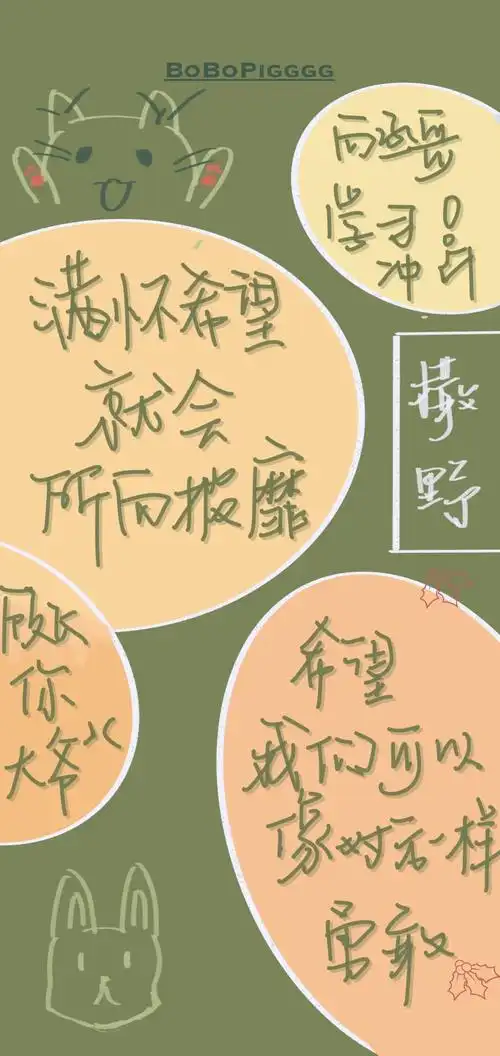 BoBoPigggg
学习
冲
满怀希望
就会
所向披靡
撒
野
顾
你
大爷
希望
我们可以
像对方一样
勇敢